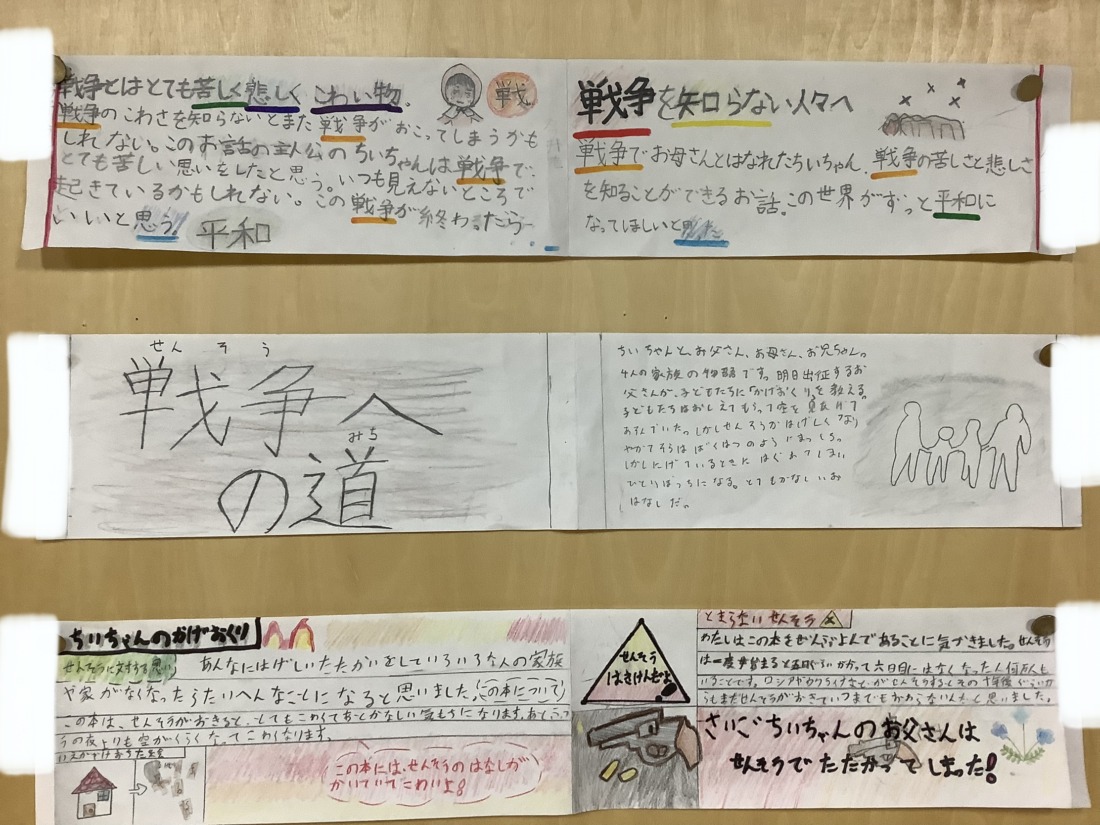 戦争とはとても苦しく悲しくこわい物。
戦
戦争のこわさを知らないとまた戦争がおこってしまうかも
しれない。このお話の主人公のちいちゃんは戦争で、
とても苦しい思いをしたと思う。いつも見えないところで
起きているかもしれない。この戦争が終わったら
いいと思う!
平和
戦争を知らない人々へ
戦争でお母さんとはなれたちいちゃん。戦争の苦しさと悲しさ
を知ることができるお話。この世界がずっと平和に
なってほしいと思った
せんそう
戦争へ
みち
の道
ちいちゃんと、お父さん、お母さん、お兄ちゃん。
4人の家族の物語です。明日出征するお
父さんが、子どもたちに「かげおくり」を教える。
子どもたちはおしえてもらって空を見あげて
あそんでいた。しかしせんそうがはげしくなり
やがてそらはばくはつのようにまっくろ。
しかしにげているときにはぐれてしまい
ひとりぼっちになる。とてもかなしいお
はなしだ。
ちいちゃんのかげおくり
せんそうに対する思い
あんなにはげしいたたかいをしていろいろな人の家族
や家がなくなったらたいへんなことになると思いました。(この本について)
この本は、せんそうがおきると、とてもこわくて
の夜よりも空がくらくなってこわくなります。
この本には、せんそうのはなしが
かいていてこわいよ!
せんそう
はきけんだよ!
とまらないせんそう
わたしはこの本をぜんぶよんであることに気づきました。せんそう
は一度
いることです。ロシアやウクライナなどがせんそうすると
と思いました。
さいごちいちゃんのお父さんは
せんそうでたたかってしまった!